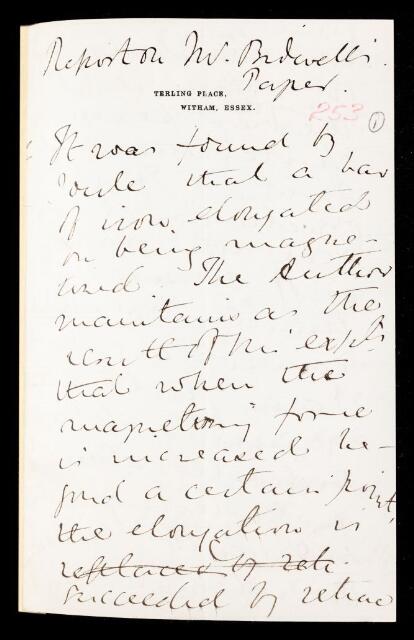 Report on Mr. Bidwell's
Paper.
TERLING PLACE,
WITHAM, ESSEX.
253
1
It was found by
Joule that a bar
of iron elongated
on being magne-
tized. The Author
maintains as the
result of his expts
that when the
magnetizing force
is increased be-
yond a certain point,
the elongation is
replaced by retr
succeeded by retrac